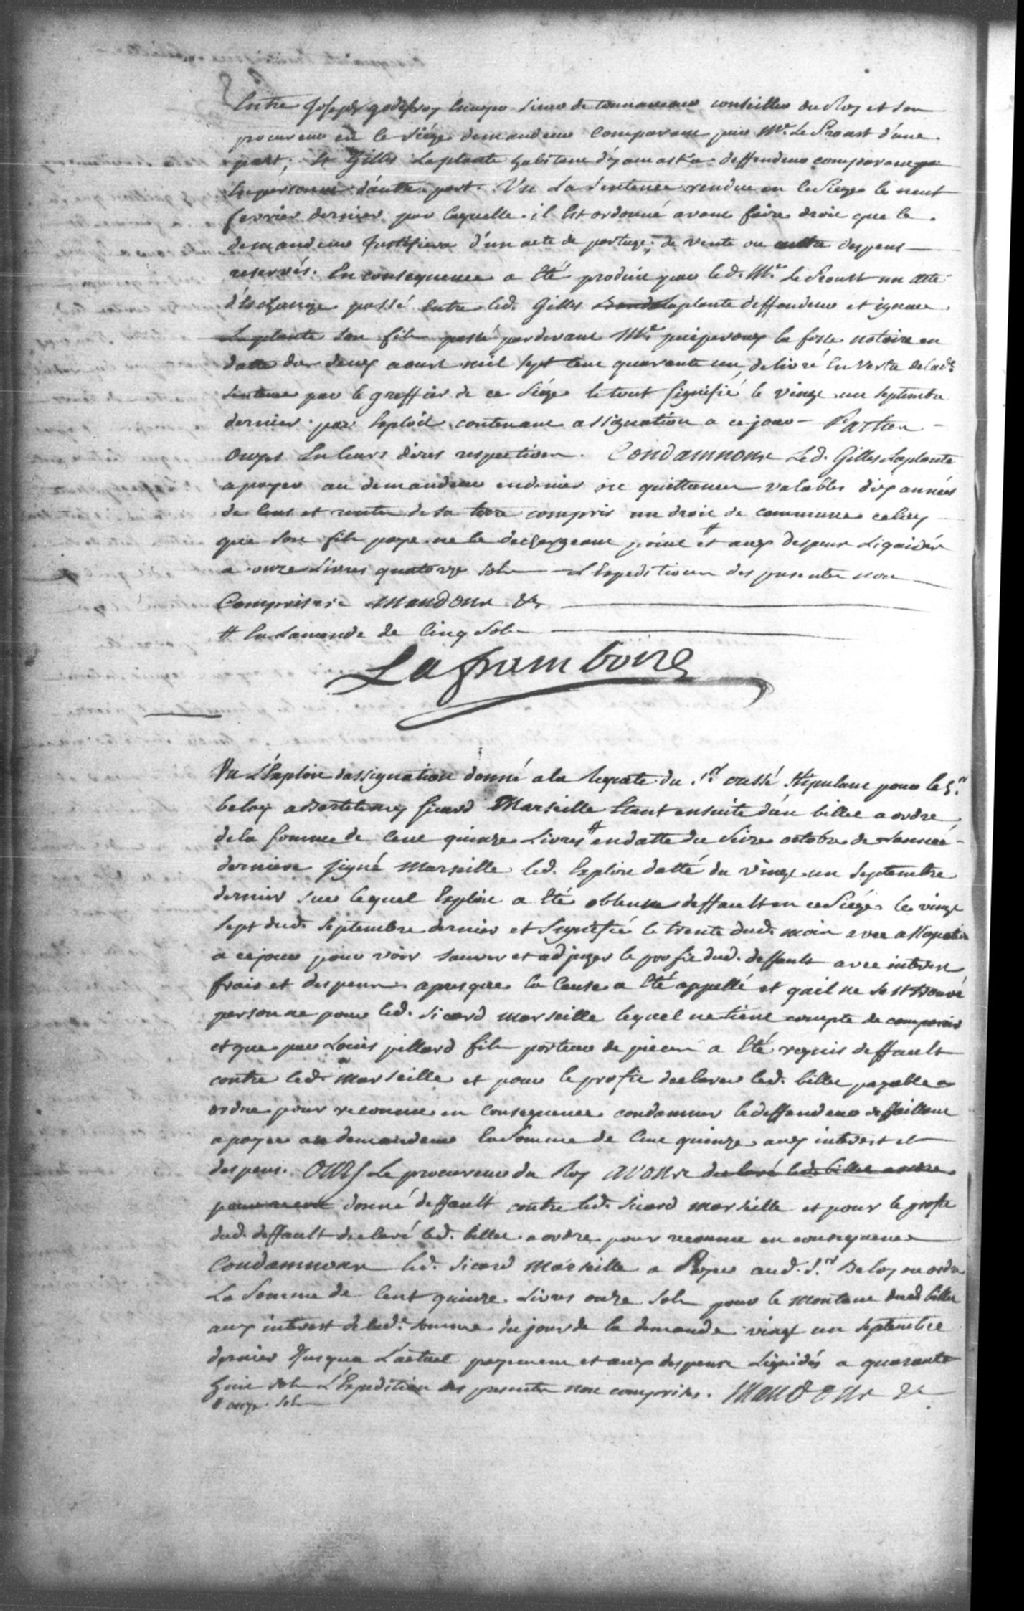 Entre Joseph godefroy Ecuyer sieur de tonnancour conseiller du Roy et son
procureur en ce siége demandeur comparant par Mr. Le Proust d'une
part, Et Gilles Laplante habitant d'yamaska deffendeur comparant
En personne d'autre part. Vu La Sentence rendue en ce siege le neuf
fevrier dernier par laquelle il Est ordonné avant faire droit que le
demandeur Justifiera d'un acte de partage, de vente ou autre despens
reservés. En consequence a Eté produit par led. Mr. Le Proust un acte
d'Eschange passé entre led. Gilles Laplante deffendeur et ignace
Laplante son fils passé pardevant Me. puiperoux la fosse notaire en
datte du deux aoust mil sept Cent quarante un, delivré En vertu de lad.
sentence par le greffier de ce siége le tout signifié le vingt un septembre
dernier par Exploit contenant assignation a ce jour - Parties
Ouyes En leurs dires respectives. Condamnons Led. Gilles Laplante
a payer au demandeur en denier ou quittances valables dix années
de Cens et rentes de sa terre compris un droit de commune celuy
que son fils paye ne le dechargeant point # et aux despens Liquidés
a onze Livres quatorze sols L'Expedition des presentes non
Comprises. Mandons &c
# En Lamende de Cinq Sols
Laframboise
Vu L'Exploit dassignation donné a la Requete du Sr. cussé stipulant pour le Sr.
beloy a Bartelemy sicard Marseille Etant ensuite d'un billet a ordre
de la somme de Cent quinze Livres # en datte du seize octobre de Lannée
derniere signé Marseille led. Exploit datté du vingt un septembre
dernier sur lequel Exploit a Eté obtenu deffault en ce Siége le vingt
sept dud. septembre dernier et signifié le trente dud. mois avec assignation
a ce jour pour voir sauver et adjuger le profit dud. deffault avec interest
frais et despens apres que la Cause a Eté appellé et qu'il ne s'est trouvé
personne pour led. Sicard Marseille lequel ne tient compte de comparoir
et que par Louis pillard fils porteur de pieces a Eté requis deffault
contre led. Marseille et pour le profit declarer led. billet payable a
ordre pour reconnu en consequence condamner le deffendeur deffaillant
a payer au demandeur la Somme de Cent quinze aux interest et
despens. Ouy Le procureur du Roy avons declaré led. billet a ordre
pour reconnu donné deffault contre led. Sicard Marseille et pour le profit
dud. deffault declaré led. billet a ordre pour reconnu en consequence
Condamnons led. Sicard Marseille a Payer aud. Sr. Beloy ou ordre
La Somme de Cent quinze Livres onze sols pour le montant dud. billet
aux interest de lad. somme du jour de la demande vingt un septembre
dernier Jusqua Lactuel payement et aux despens Liquidés a quarante
huit sols L'Expedition des presentes non comprises. Mandons &c
# onze sols